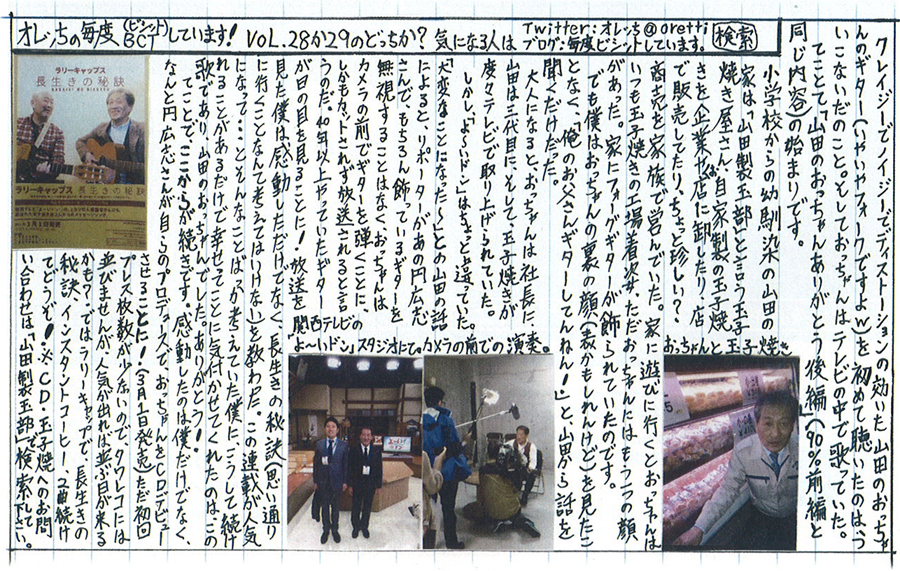 オレッちの毎度BCT(ビシット)しています! VOL.28か29のどっちか? 気になる人は
Twitter:オレッち@oretti
ブログ:毎度ビシットしています。 検索
クレイジーでノイジーでディストーションの効いた山田のおっちゃ
んのギター(いやいやフォークですよw)を初めて聴いたのは、つ
いこないだのこと。そしておっちゃんはテレビの中で歌っていた。
てことで、山田のおっちゃんありがとう後編(90%前編と
同じ内容)の始まりです。
小学校からの幼馴染の山田の
家は「山田製玉部」と言う玉子
焼き屋さんで、自家製の玉子焼
きを企業や店に卸したり、店
で販売してたり、ちょっと珍しい?
商売を家族で営んでいた。家に遊びに行くとおっちゃんは
いつも玉子焼きの工場着姿、ただおっちゃんにはもう1つの顔
があった。家にフォークギターが飾られていたのです。
でも僕はおっちゃんの裏の顔(表かもしれんけど)を見たこ
となく、「俺のお父さんギターしてんねん!」と山田から話を
聞くだけだった。
大人になると、おっちゃんは社長に
山田は二代目に、そして、玉子焼きが
度々テレビで取り上げられていた。
しかし「よ〜いドン」はちょっと違っていた。
「大変なことになった〜」との山田の話
によると、リポーターがあの円広志
さんで、もちろん飾っているギターを
無視することはなく、おっちゃんは
カメラの前でギターを弾くことに、
しかもカットされず放送されると言
うのだ。40年以上やっていたギター
が日の目を見ることに!放送を
見た僕は感動しただけでなく、長生きの秘訣(思い通り
に行くことなんて考えてはいけない)を教わった。この連載が人気
になって・・とそんなことばっか考えていた僕に、こうして続け
れることがあるだけで幸せってことに気付かせてくれたのは、この
歌であり、山田のおっちゃんでした。ありがとう!
てことで、ここからが続きです。感動したのは僕だけでなく、
なんと円広志さんが自らのプロデュースで、おっちゃんをCDデビュー
させることに!(3月1日発売)ただ初回
プレス枚数が少ないので、タワレコには
並びませんが、人気が出れば並ぶ日が来る
かも?ではラリーキャップスで、長生きの
秘訣、インスタントコーヒー、2曲続け
てどうぞ!※CD、玉子焼へのお問
い合わせは「山田製玉部」で検索下さい。
おっちゃんと玉子焼き
関西テレビの
よ〜いドン スタジオにて。カメラの前での演奏。
ラリーキャップス
長生きの秘訣
NAGAIKI NO HIKETSU
ラリーキャップス 長生きの秘訣
3月1日発売